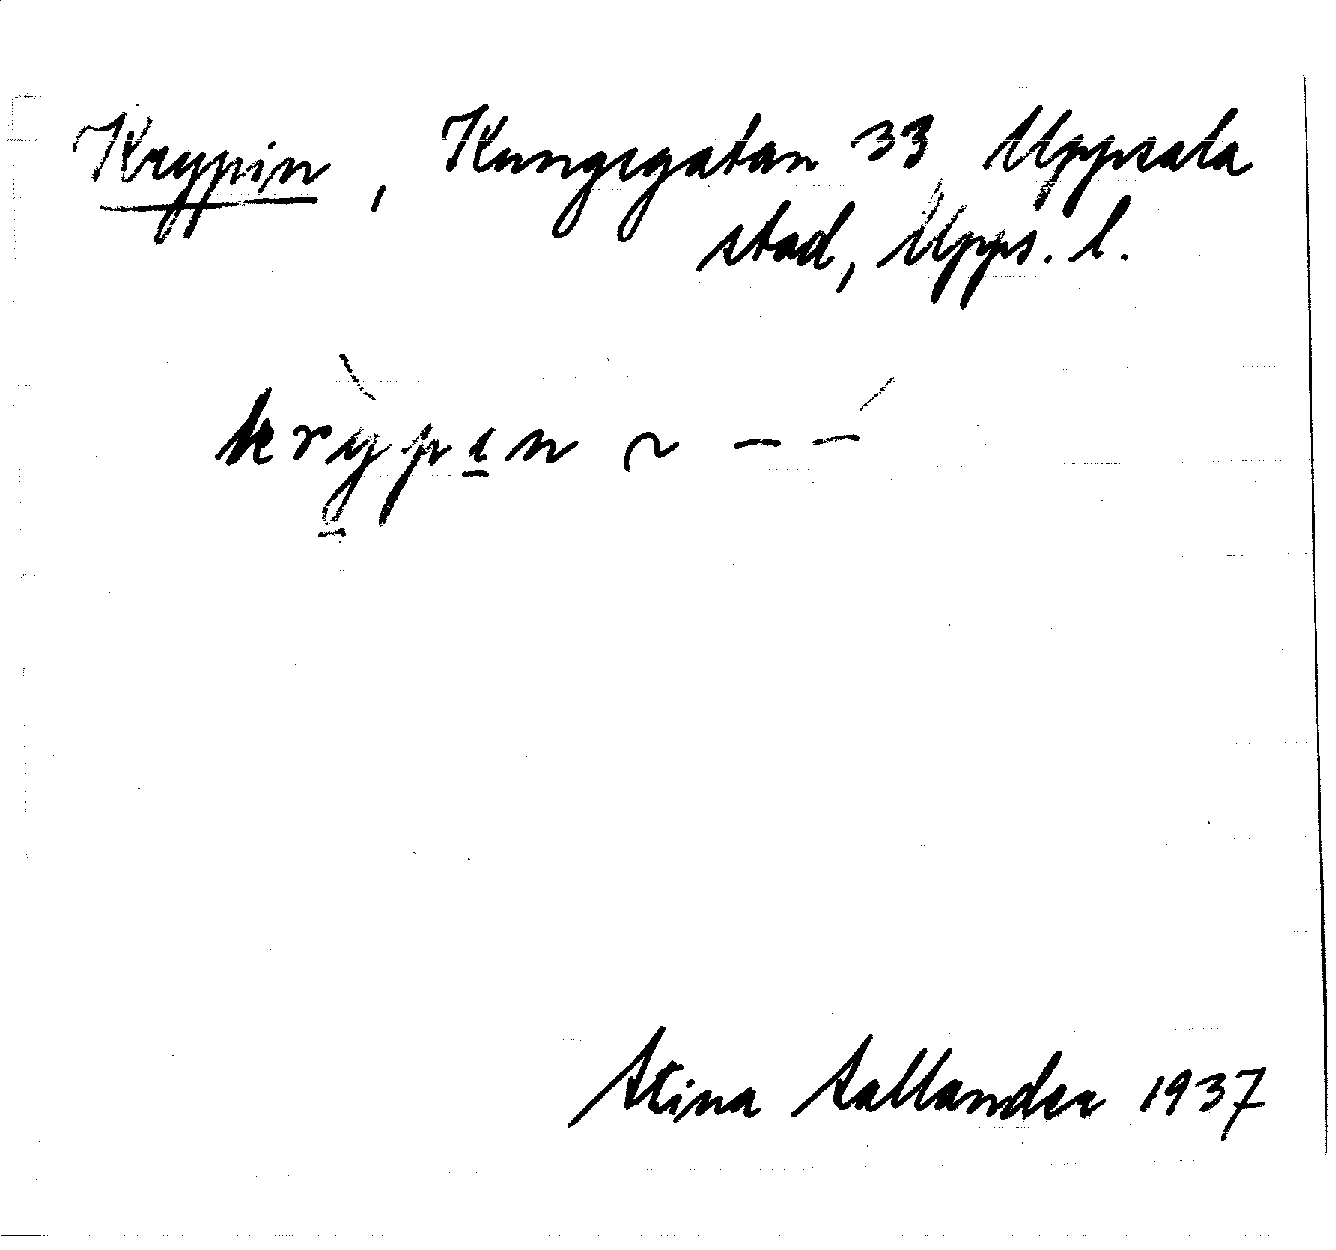 Krypin, Kungsgatan 33, Uppsala
stad, Upps. l.
krỳpın ~ – –́
Stina Sallander 1937